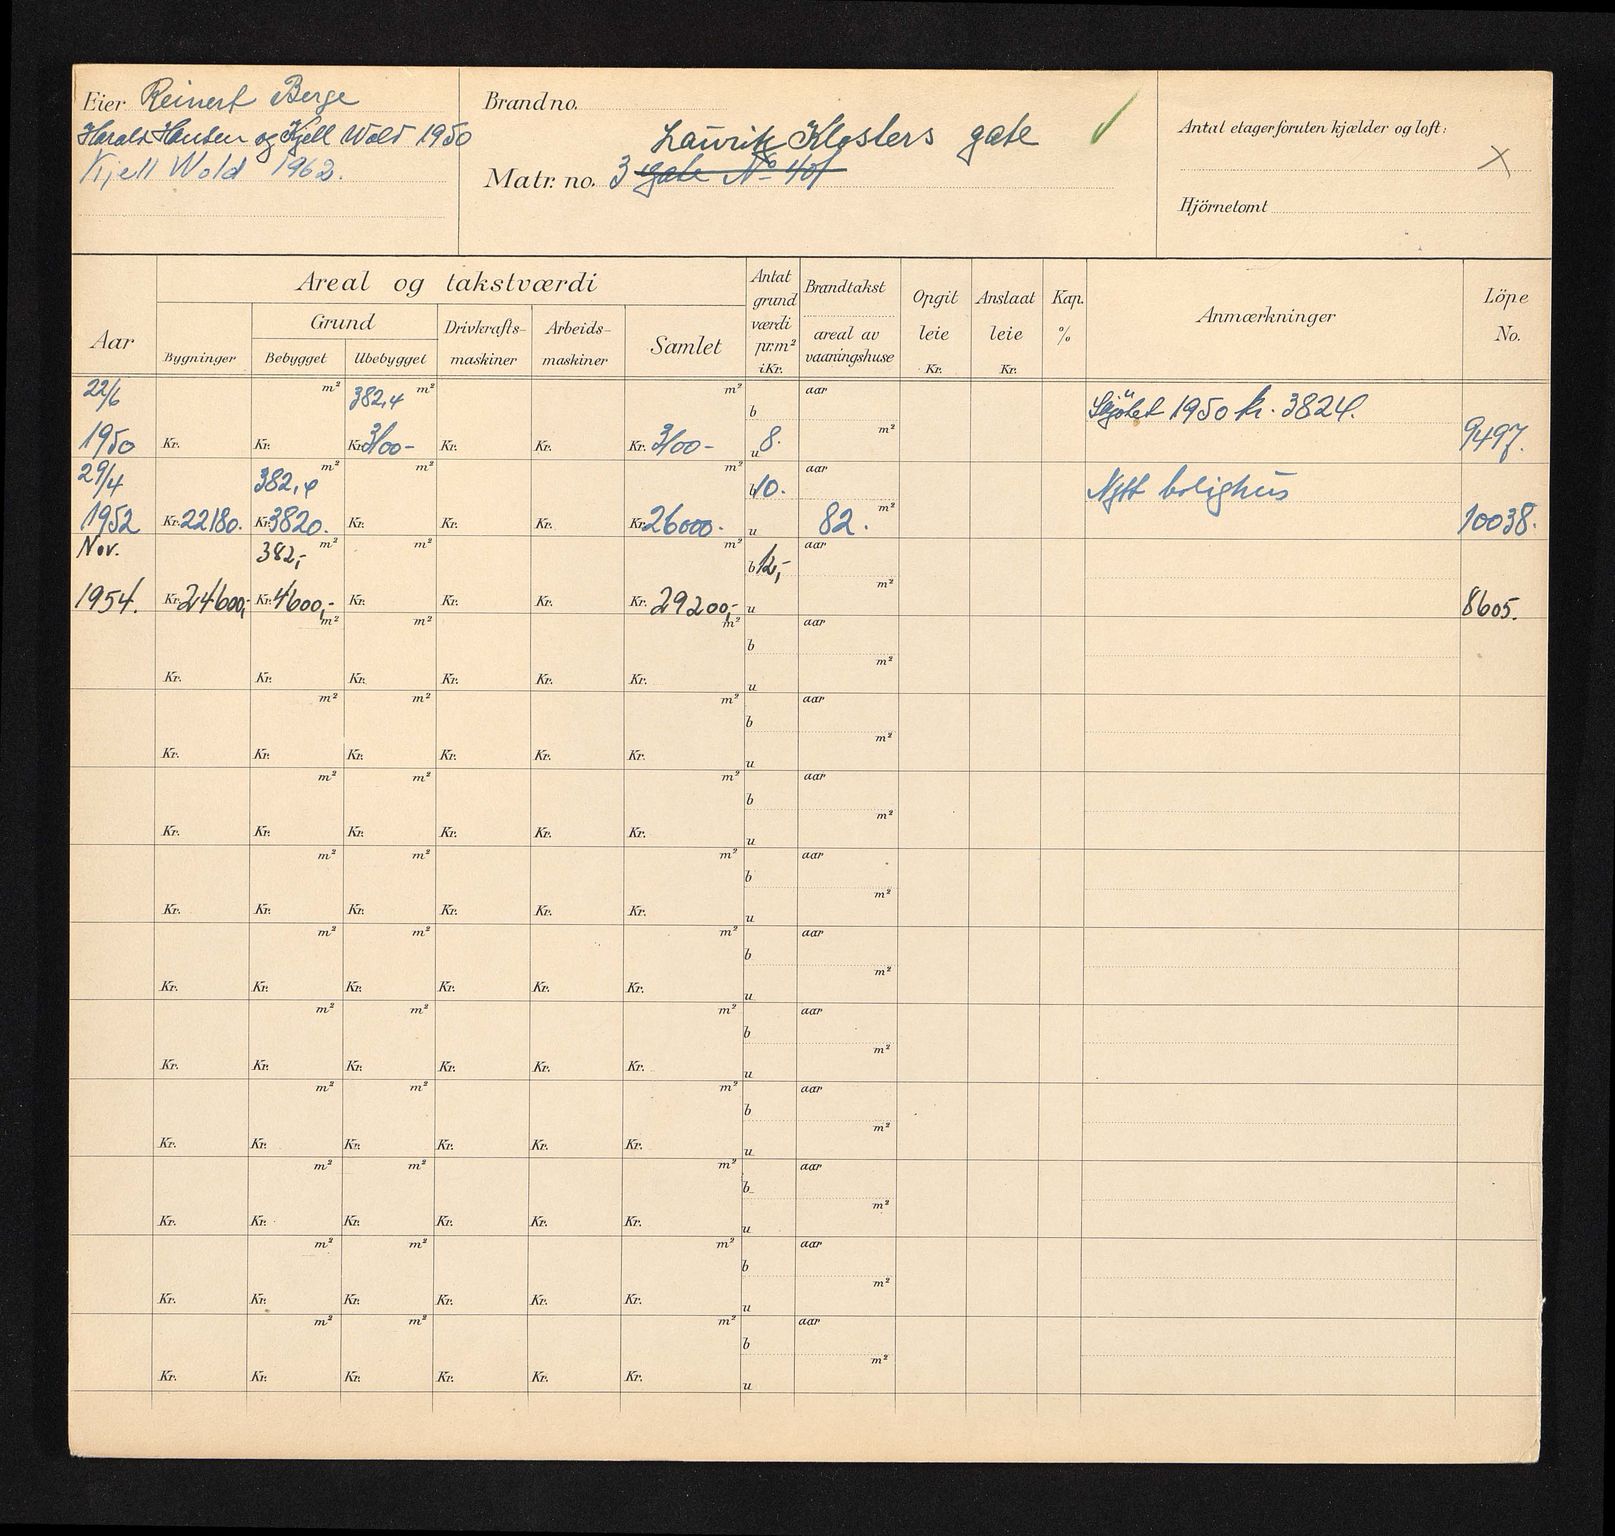 Eier Reinert Berge
Harald Hansen og Kjell Wold 1950
Kjell Wold 1962.
Brand no.
Lauritz Klosters gate
Matr. no. 3 gate No 401
Antal etager foruten kjælder og loft: X
Hjörnetomt
Areal og takstværdi
Aar
Bygninger
Grund
Bebygget
Ubebygget
Drivkrafts-
maskiner
Arbeids-
maskiner
Samlet
Antat
grund
værdi
pr.m²
i Kr.
Brandtakst
areal av
vaaningshuse
Opgit
leie
Kr.
Anslaat
leie
Kr.
Kap.
%
Anmærkninger
Löpe
No.
22/6 m² 382,4 m² m² b aar Skjötet 1950 kr. 3824.
1950 Kr. Kr. Kr. 3100- Kr. Kr. Kr. 3100- u 8. m² 9497.
29/4 382,4 m² m² m² b 10. aar Nytt bolighus
1952 Kr. 22180. Kr. 3820. Kr. Kr. Kr. Kr. 26000. u 82. m² 10038.
Nov. 382,- m² m² m² b 12,- aar
1954. Kr. 24600,- Kr. 4600,- Kr. Kr. Kr. Kr. 29200,- u m² 8605.
m² m² m² b aar
Kr. Kr. Kr. Kr. Kr. Kr. u m²
m² m² m² b aar
Kr. Kr. Kr. Kr. Kr. Kr. u m²
m² m² m² b aar
Kr. Kr. Kr. Kr. Kr. Kr. u m²
m² m² m² b aar
Kr. Kr. Kr. Kr. Kr. Kr. u m²
m² m² m² b aar
Kr. Kr. Kr. Kr. Kr. Kr. u m²
m² m² m² b aar
Kr. Kr. Kr. Kr. Kr. Kr. u m²
m² m² m² b aar
Kr. Kr. Kr. Kr. Kr. Kr. u m²
m² m² m² b aar
Kr. Kr. Kr. Kr. Kr. Kr. u m²
m² m² m² b aar
Kr. Kr. Kr. Kr. Kr. Kr. u m²
m² m² m² b aar
Kr. Kr. Kr. Kr. Kr. Kr. u m²